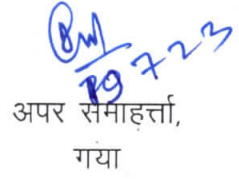 19723
अपर समाहर्त्ता,
गया